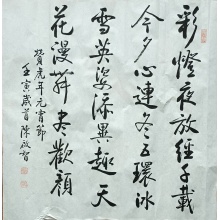 彩燈夜放經千載
今夕心連冬五環冰
雪英姿添異趣天
花漫舞尽歡顏
賀虎年元宵節
壬寅歲首陳啟智